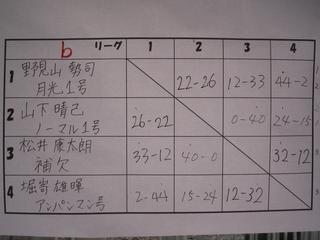 b リーグ 1 2 3 4
1 野見山 勢司 22-26 12-33 44-2
月光1号
2 山下 晴己 26-22 0-40 24-15
ノーマル1号
3 松井 康太朗 33-12 40-0 32-12
補欠
4 堀寄 雄暉 2-44 15-24 12-32
アンパンマン号